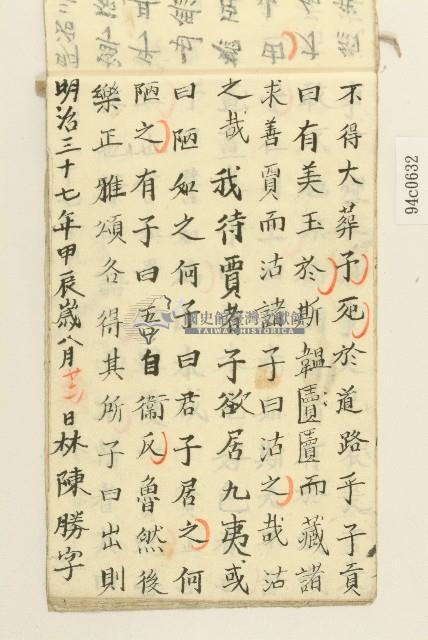 不得大葬予死於道路乎子貢
曰有美玉於斯韞匵匵而藏諸
求善賈而沽諸子曰沽之哉沽
之哉我待賈者子欲居九夷或
曰陋如之何子曰君子居之何
陋之有子曰吾自衛反魯然後
樂正雅頌各得其所子曰出則
明治三十七年甲辰歲八月廿三日林陳勝字
國史館臺灣文獻館
TAIWAN HISTORICA
94c0632